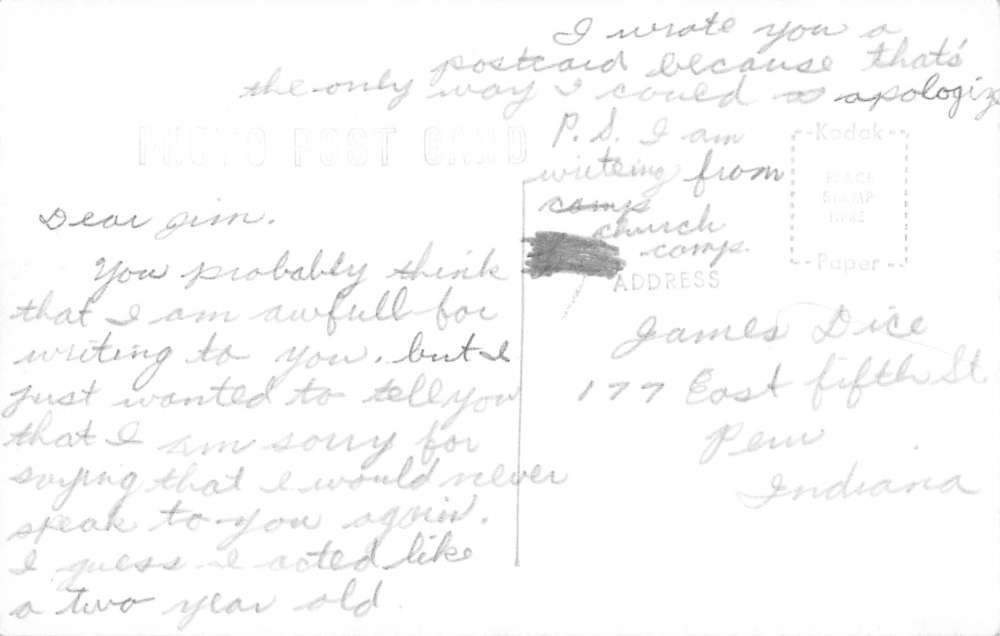 I wrote you a
postcard because that's
the only way I could apologize
PHOTO POST CARD
P.S. I am
writeing from
camp
church
camp.
Kodak
PLACE
STAMP
HERE
Paper
ADDRESS
Dear Jim.
You probably think
that I am awfull for
writing to you. but I
just wanted to tell you
that I am sorry for
saying that I would never
speak to you again.
I guess I acted like
a two year old
James Dice
177 East fifth St
Peru
Indiana